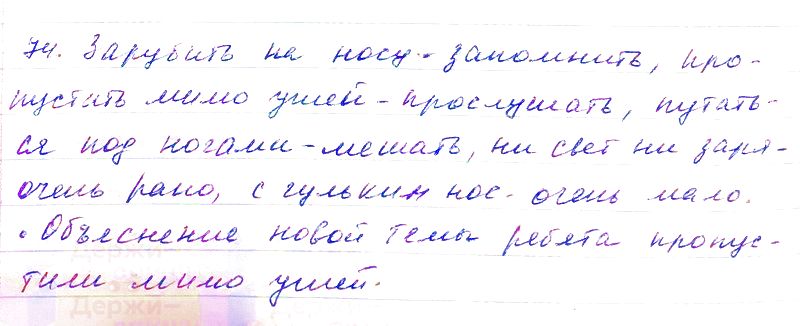 74. Зарубить на носу - запомнить, про-
пустить мимо ушей - прослушать, путать-
ся под ногами - мешать, ни свет ни заря -
очень рано, с гулькин нос - очень мало.
• Объяснение новой темы ребята пропус-
тили мимо ушей.